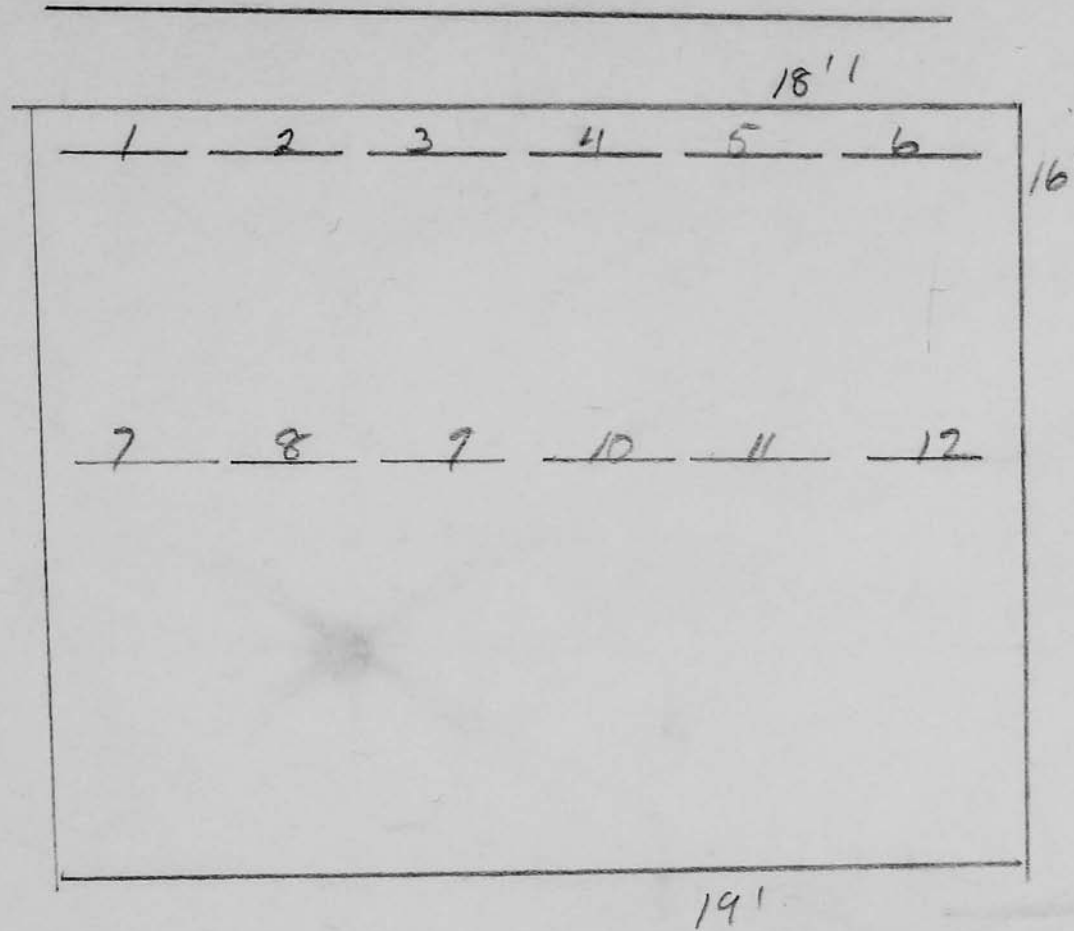 18'1
1 2 3 4 5 6
16
7 8 9 10 11 12
19'